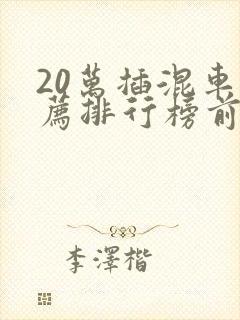 20萬插混車
薦排行榜前
李澤楷